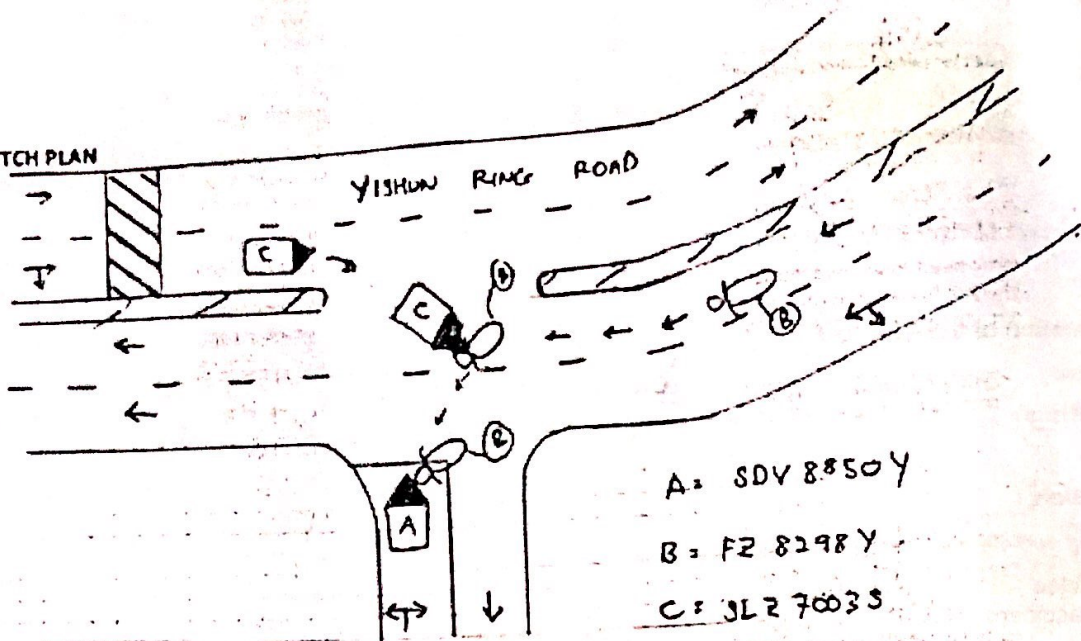 TCH PLAN
YISHUN RING ROAD
C
C
B
B
B
A
A= SDV 8850Y
B= FZ 8298Y
C= SLZ 7003S